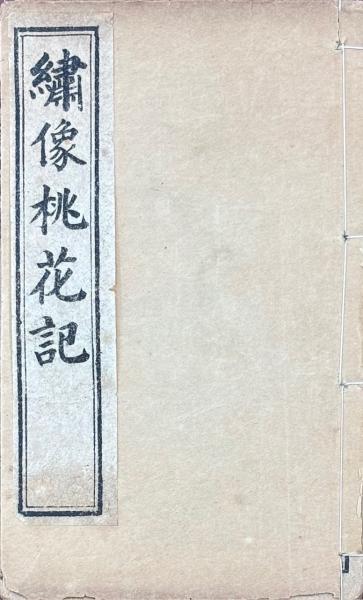 繡像桃花記